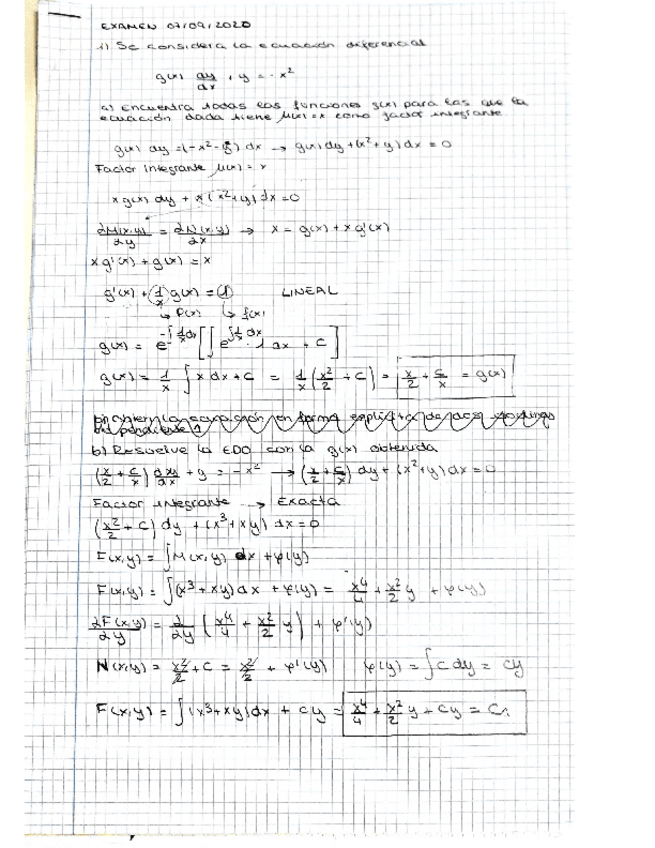 EXAMEN 07/09/2020
1) Se considera la ecuación diferencial
g(x) dy/dx + y = -x²
a) Encuentra todas las funciones g(x) para las que la
ecuación dada tiene μ(x)=x como factor integrante
g(x) dy = (-x² - y) dx → g(x) dy + (x² + y) dx = 0
Factor integrante μ(x) = x
x g(x) dy + x (x² + y) dx = 0
∂M(x,y)/∂y = ∂N(x,y)/∂x → x = g(x) + x g'(x)
x g'(x) + g(x) = x
g'(x) + (1/x) g(x) = 1 LINEAL
→ P(x) → f(x)
g(x) = e^{-∫1/x dx} [∫ e^{∫1/x dx} · 1 dx + C]
g(x) = 1/x ∫ x dx + C = 1/x (x²/2 + C) = x/2 + C/x = g(x)
b) Resuelve la EDO con la g(x) obtenida
(x/2 + C/x) dy/dx + y = -x² → (x/2 + C/x) dy + (x² + y) dx = 0
Factor integrante → Exacta
(x²/2 + C) dy + (x³ + xy) dx = 0
F(x,y) = ∫ M(x,y) dx + φ(y)
F(x,y) = ∫ (x³ + xy) dx + φ(y) = x⁴/4 + x²/2 y + φ(y)
∂F(x,y)/∂y = ∂/∂y (x⁴/4 + x²/2 y) + φ'(y)
N(x,y) = x²/2 + C = x²/2 + φ'(y) φ(y) = ∫ C dy = Cy
F(x,y) = ∫ (x³ + xy) dx + Cy = x⁴/4 + x²/2 y + Cy = C₁